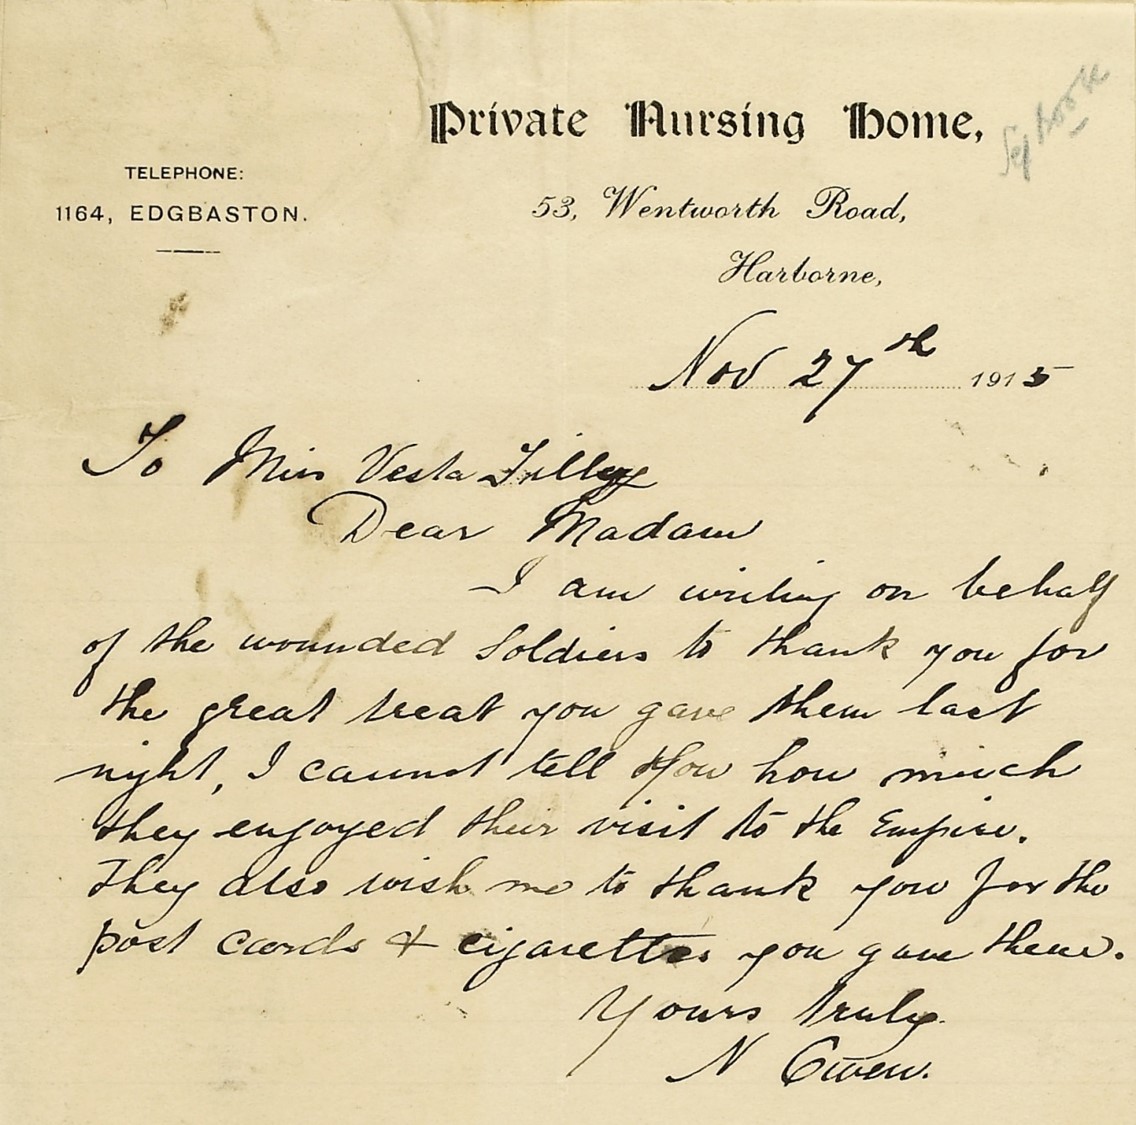 Private Nursing Home,
TELEPHONE:
1164, EDGBASTON.
53, Wentworth Road,
Harborne,
Nov 27th 1915
To Miss Vesta Tilley
Dear Madam
I am writing on behalf
of the wounded Soldiers to thank you for
the great treat you gave them last
night, I cannot tell You how much
they enjoyed their visit to the Empire.
They also wish me to thank you for the
post cards & cigarettes you gave them.
Yours truly
N Owen.